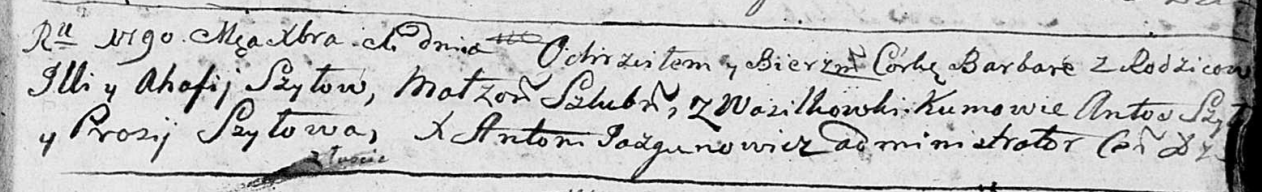 Rᵘ 1790 Mca Xbra dnia Ochrzciłem y Bierzm Córkę Barbarę z Rodzicow
Illi y Ahafij Szyłow, Małżoñ Szlubñ, Z Wasilkowki Kumowie Antos Szył
y Prosij Szyłowa, X Antoni Jazgunowicz administrator Cerñ